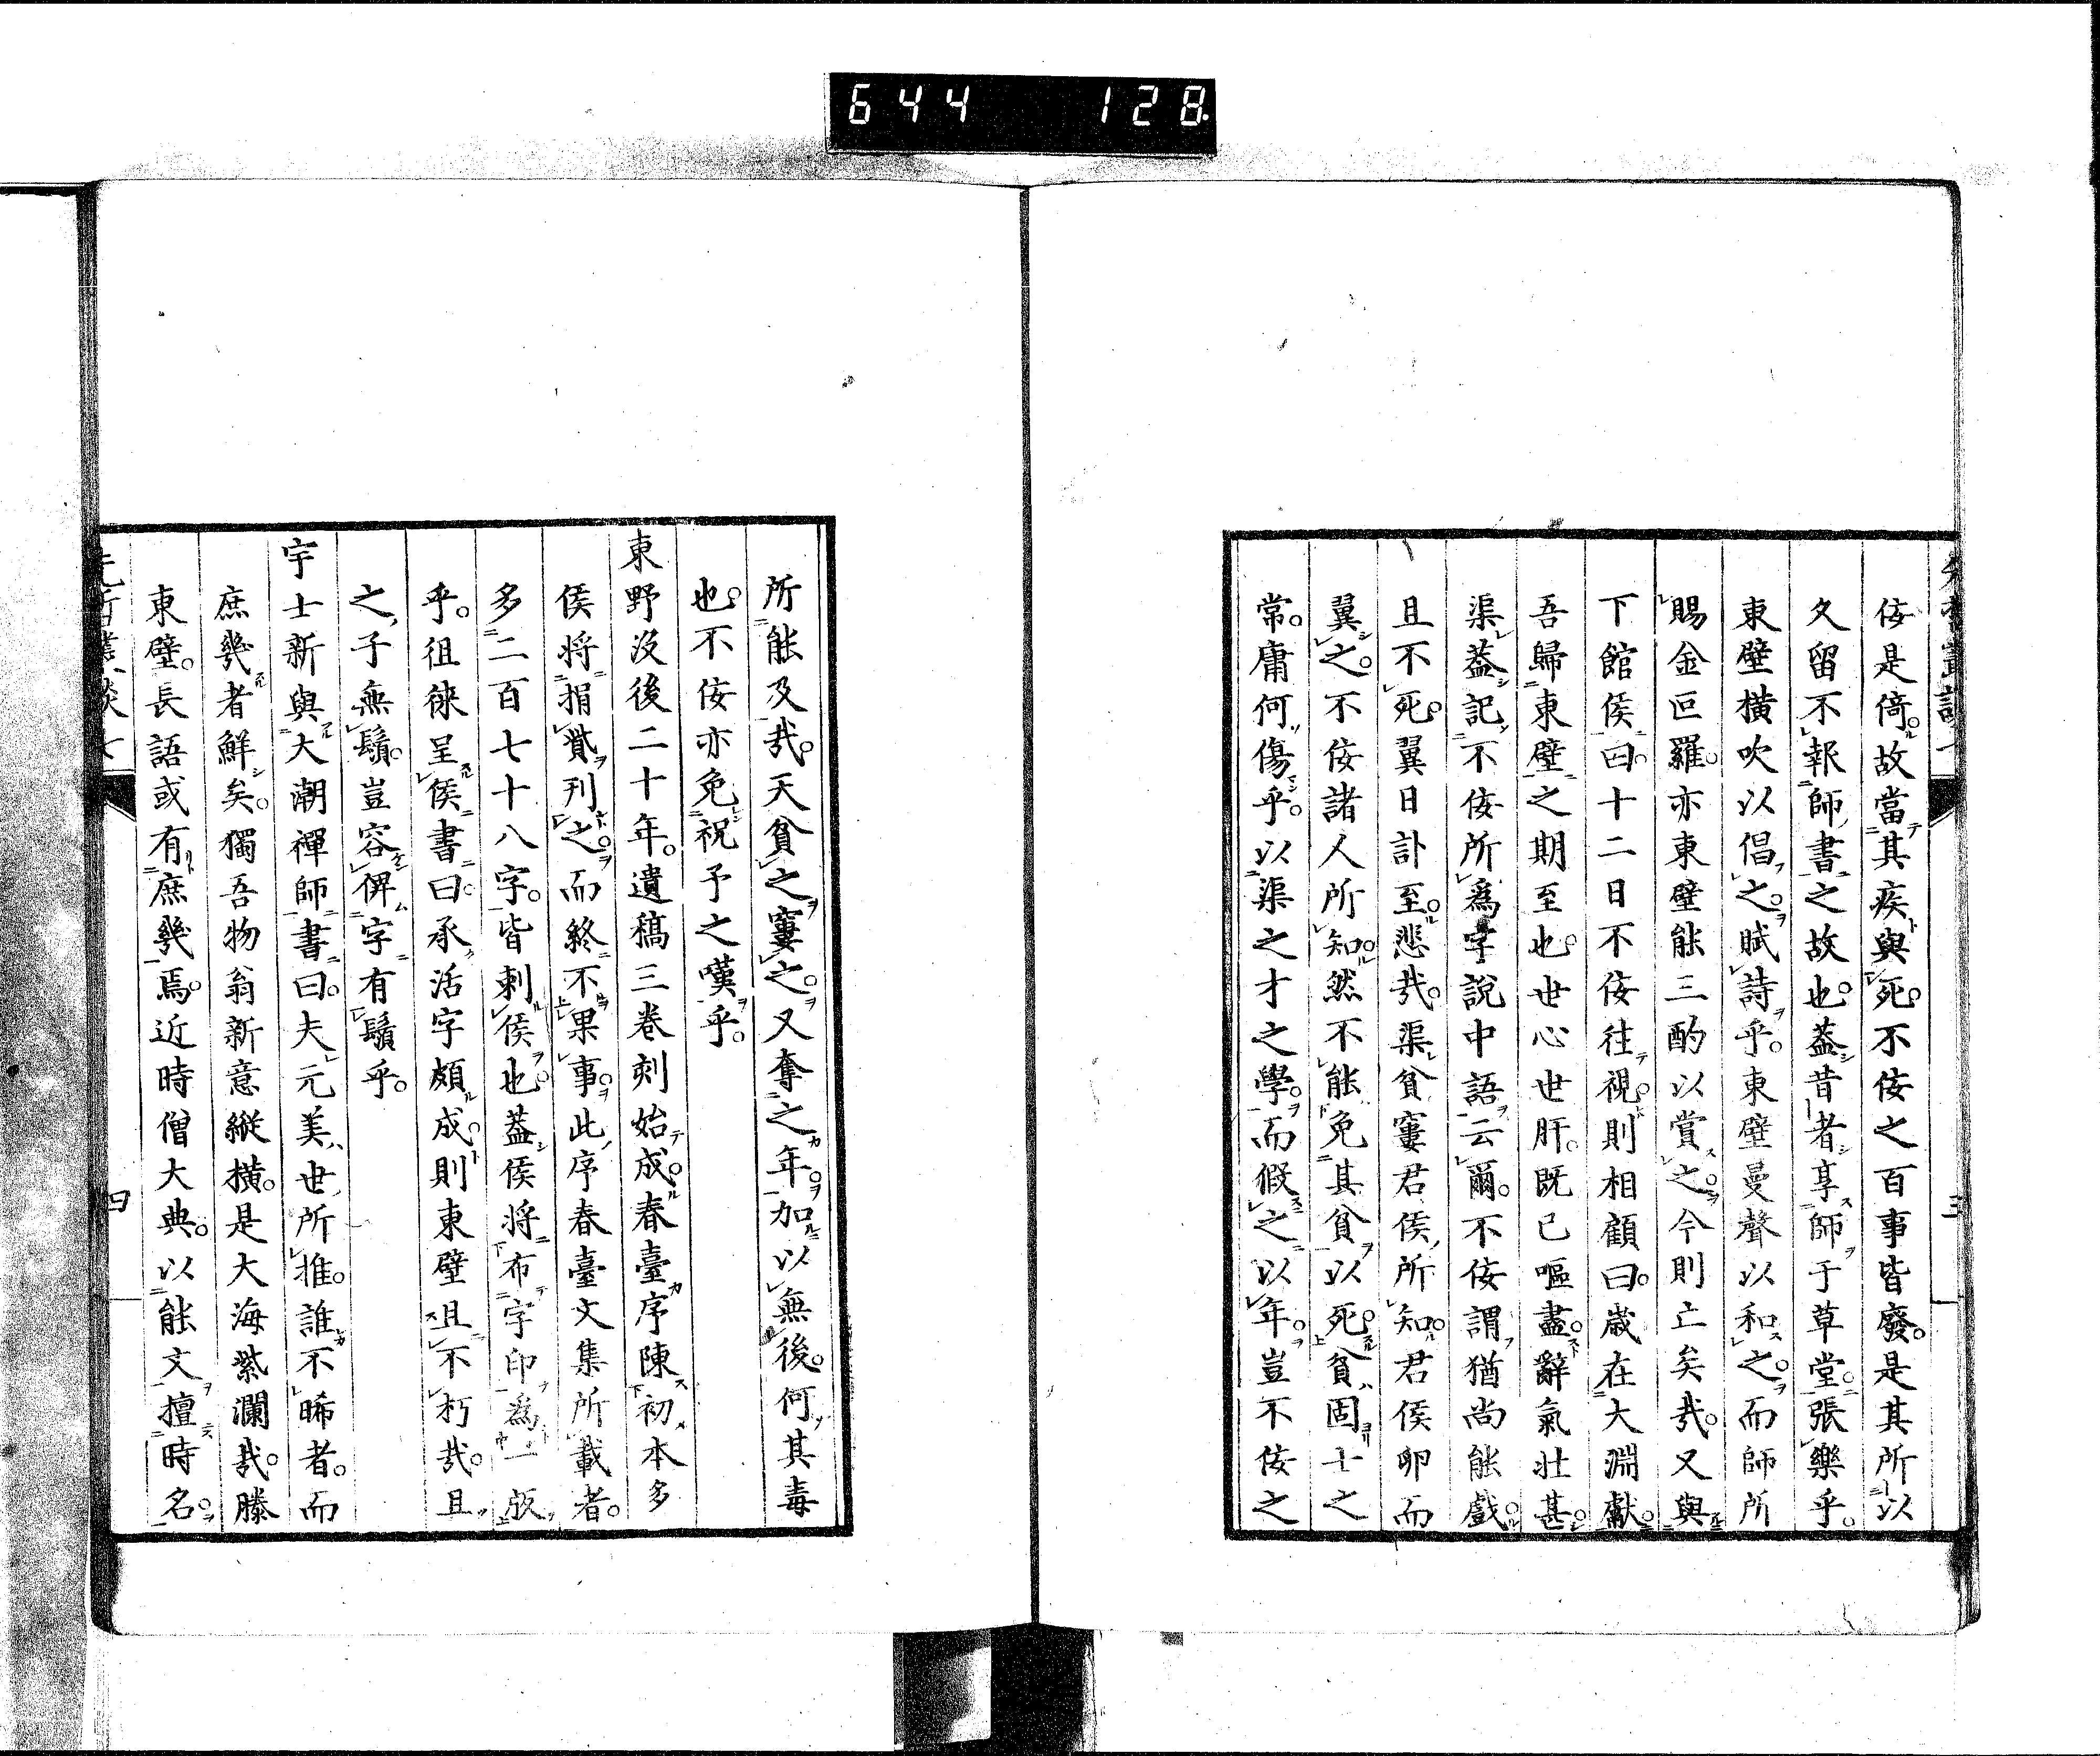 644 128
佞是倚故當其疾與死不佞之百事皆廢是其所以
久留不報師書之故也葢昔者享師于草堂張樂乎
東壁橫吹以倡之賦詩乎東壁曼聲以和之而師所
賜金叵羅亦東壁能三酌以賞之今則亡矣哉又與
下館侯曰十二日不佞往視則相顧曰歲在大淵獻
吾歸東壁之期至也世心世肝既已嘔盡辭氣壯甚
渠葢記不佞所爲字說中語云爾不佞謂猶尚能戲
且不死翼日訃至悲哉渠貧窶君侯所知君侯卵而
翼之不佞諸人所知然不能免其貧以死貧固士之
常庸何傷乎以渠之才之學而假之以年豈不佞之
三
所能及哉天貧之窶之又奪之年加以無後何其毒
也不佞亦免祝予之嘆乎
東野沒後二十年遺稿三卷刻始成春臺序陳初本多
侯將捐貲刊之而終不果事此序春臺文集所載者
多二百七十八字皆刺侯也葢侯將布字印爲一版
乎徂徠呈侯書曰承活字頗成則東壁且不朽哉且
之子無鬚豈容俾字有鬚乎
宇士新與大潮禪師書曰夫元美世所推誰不晞者而
庶幾者鮮矣獨吾物翁新意縱橫是大海紫瀾哉滕
東壁長語或有庶幾焉近時僧大典以能文擅時名
四